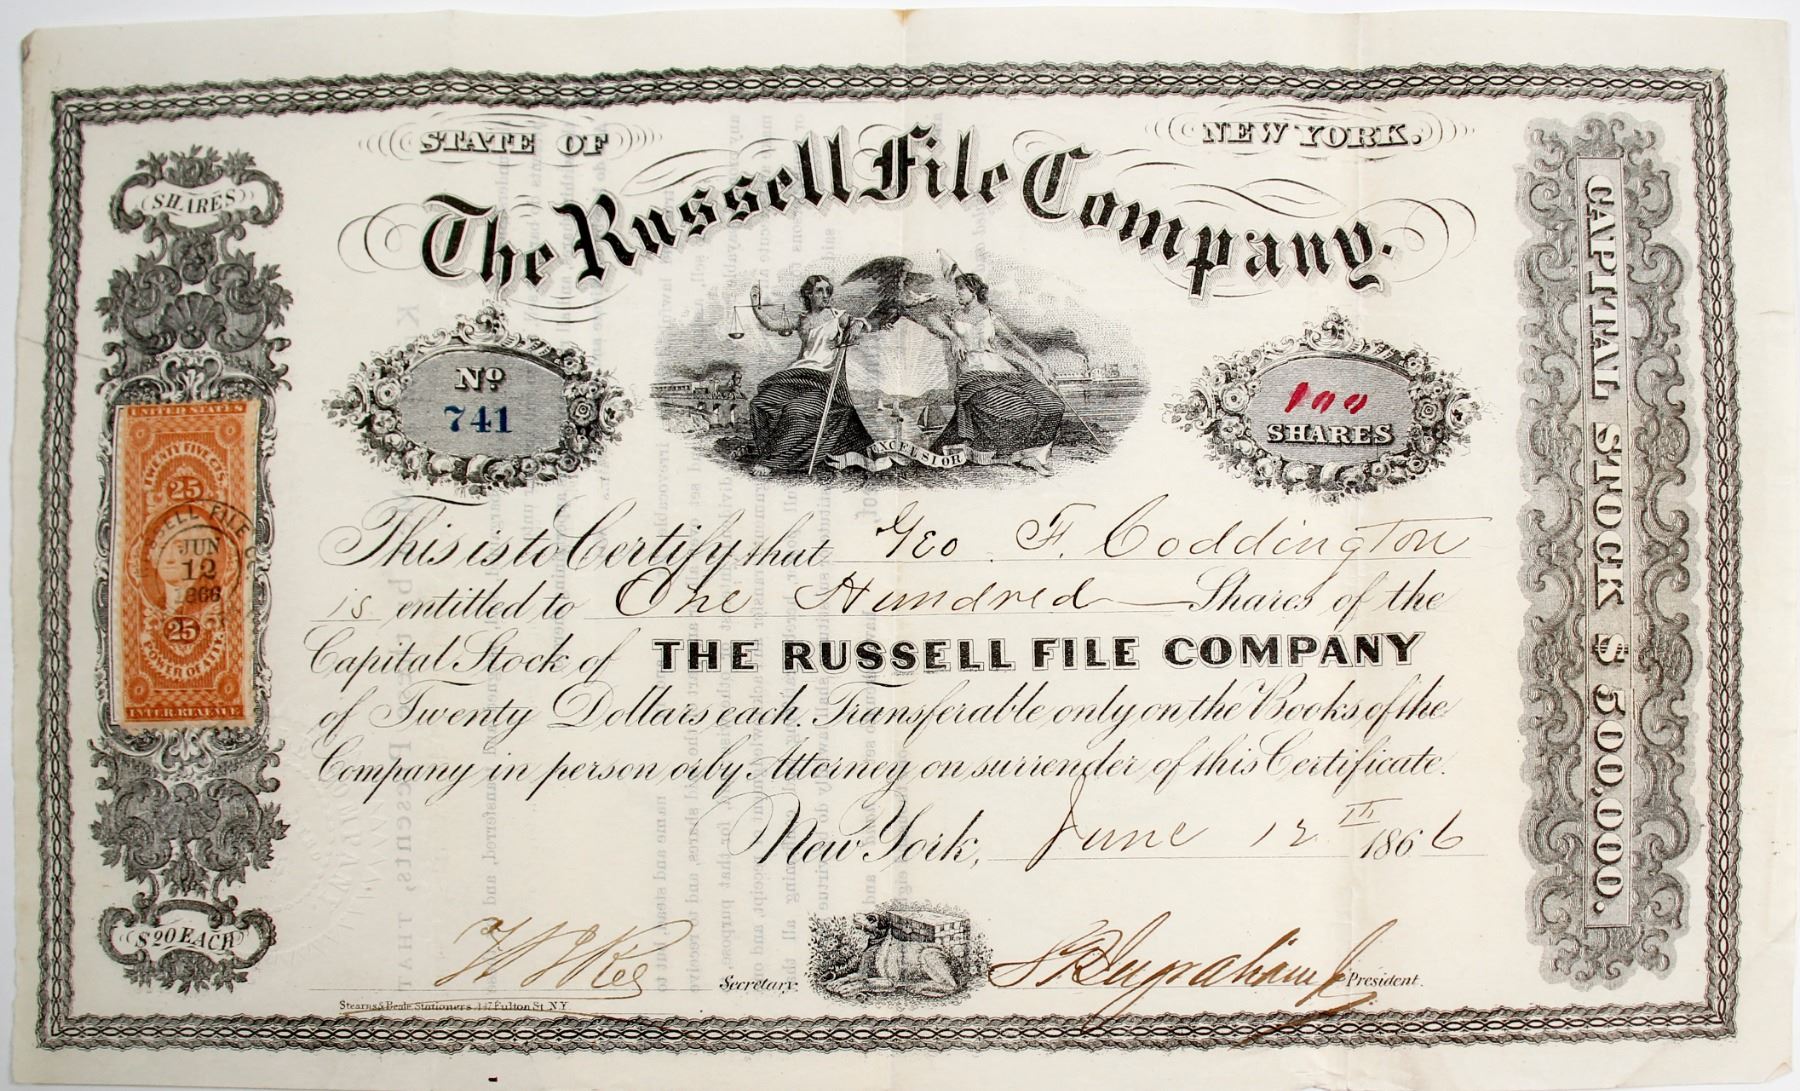 STATE OF
NEW YORK.
The Russell File Company.
SHARES
Nº
741
100
SHARES
EXCELSIOR
This is to Certify that Geo F. Coddington
is entitled to One Hundred Shares of the
Capital Stock of THE RUSSELL FILE COMPANY
of Twenty Dollars each. Transferable only on the Books of the
Company in person or by Attorney on surrender of this Certificate.
New York, June 12th 1866
Secretary.
President.
Stearns & Beale Stationers 147 Fulton St. N.Y.
$20 EACH
CAPITAL STOCK $500,000.
UNITED STATES
TWENTY FIVE CTS.
25
RUSSELL FILE
JUN
12
1866
25
POWER OF ATT'Y.
INTER. REVENUE